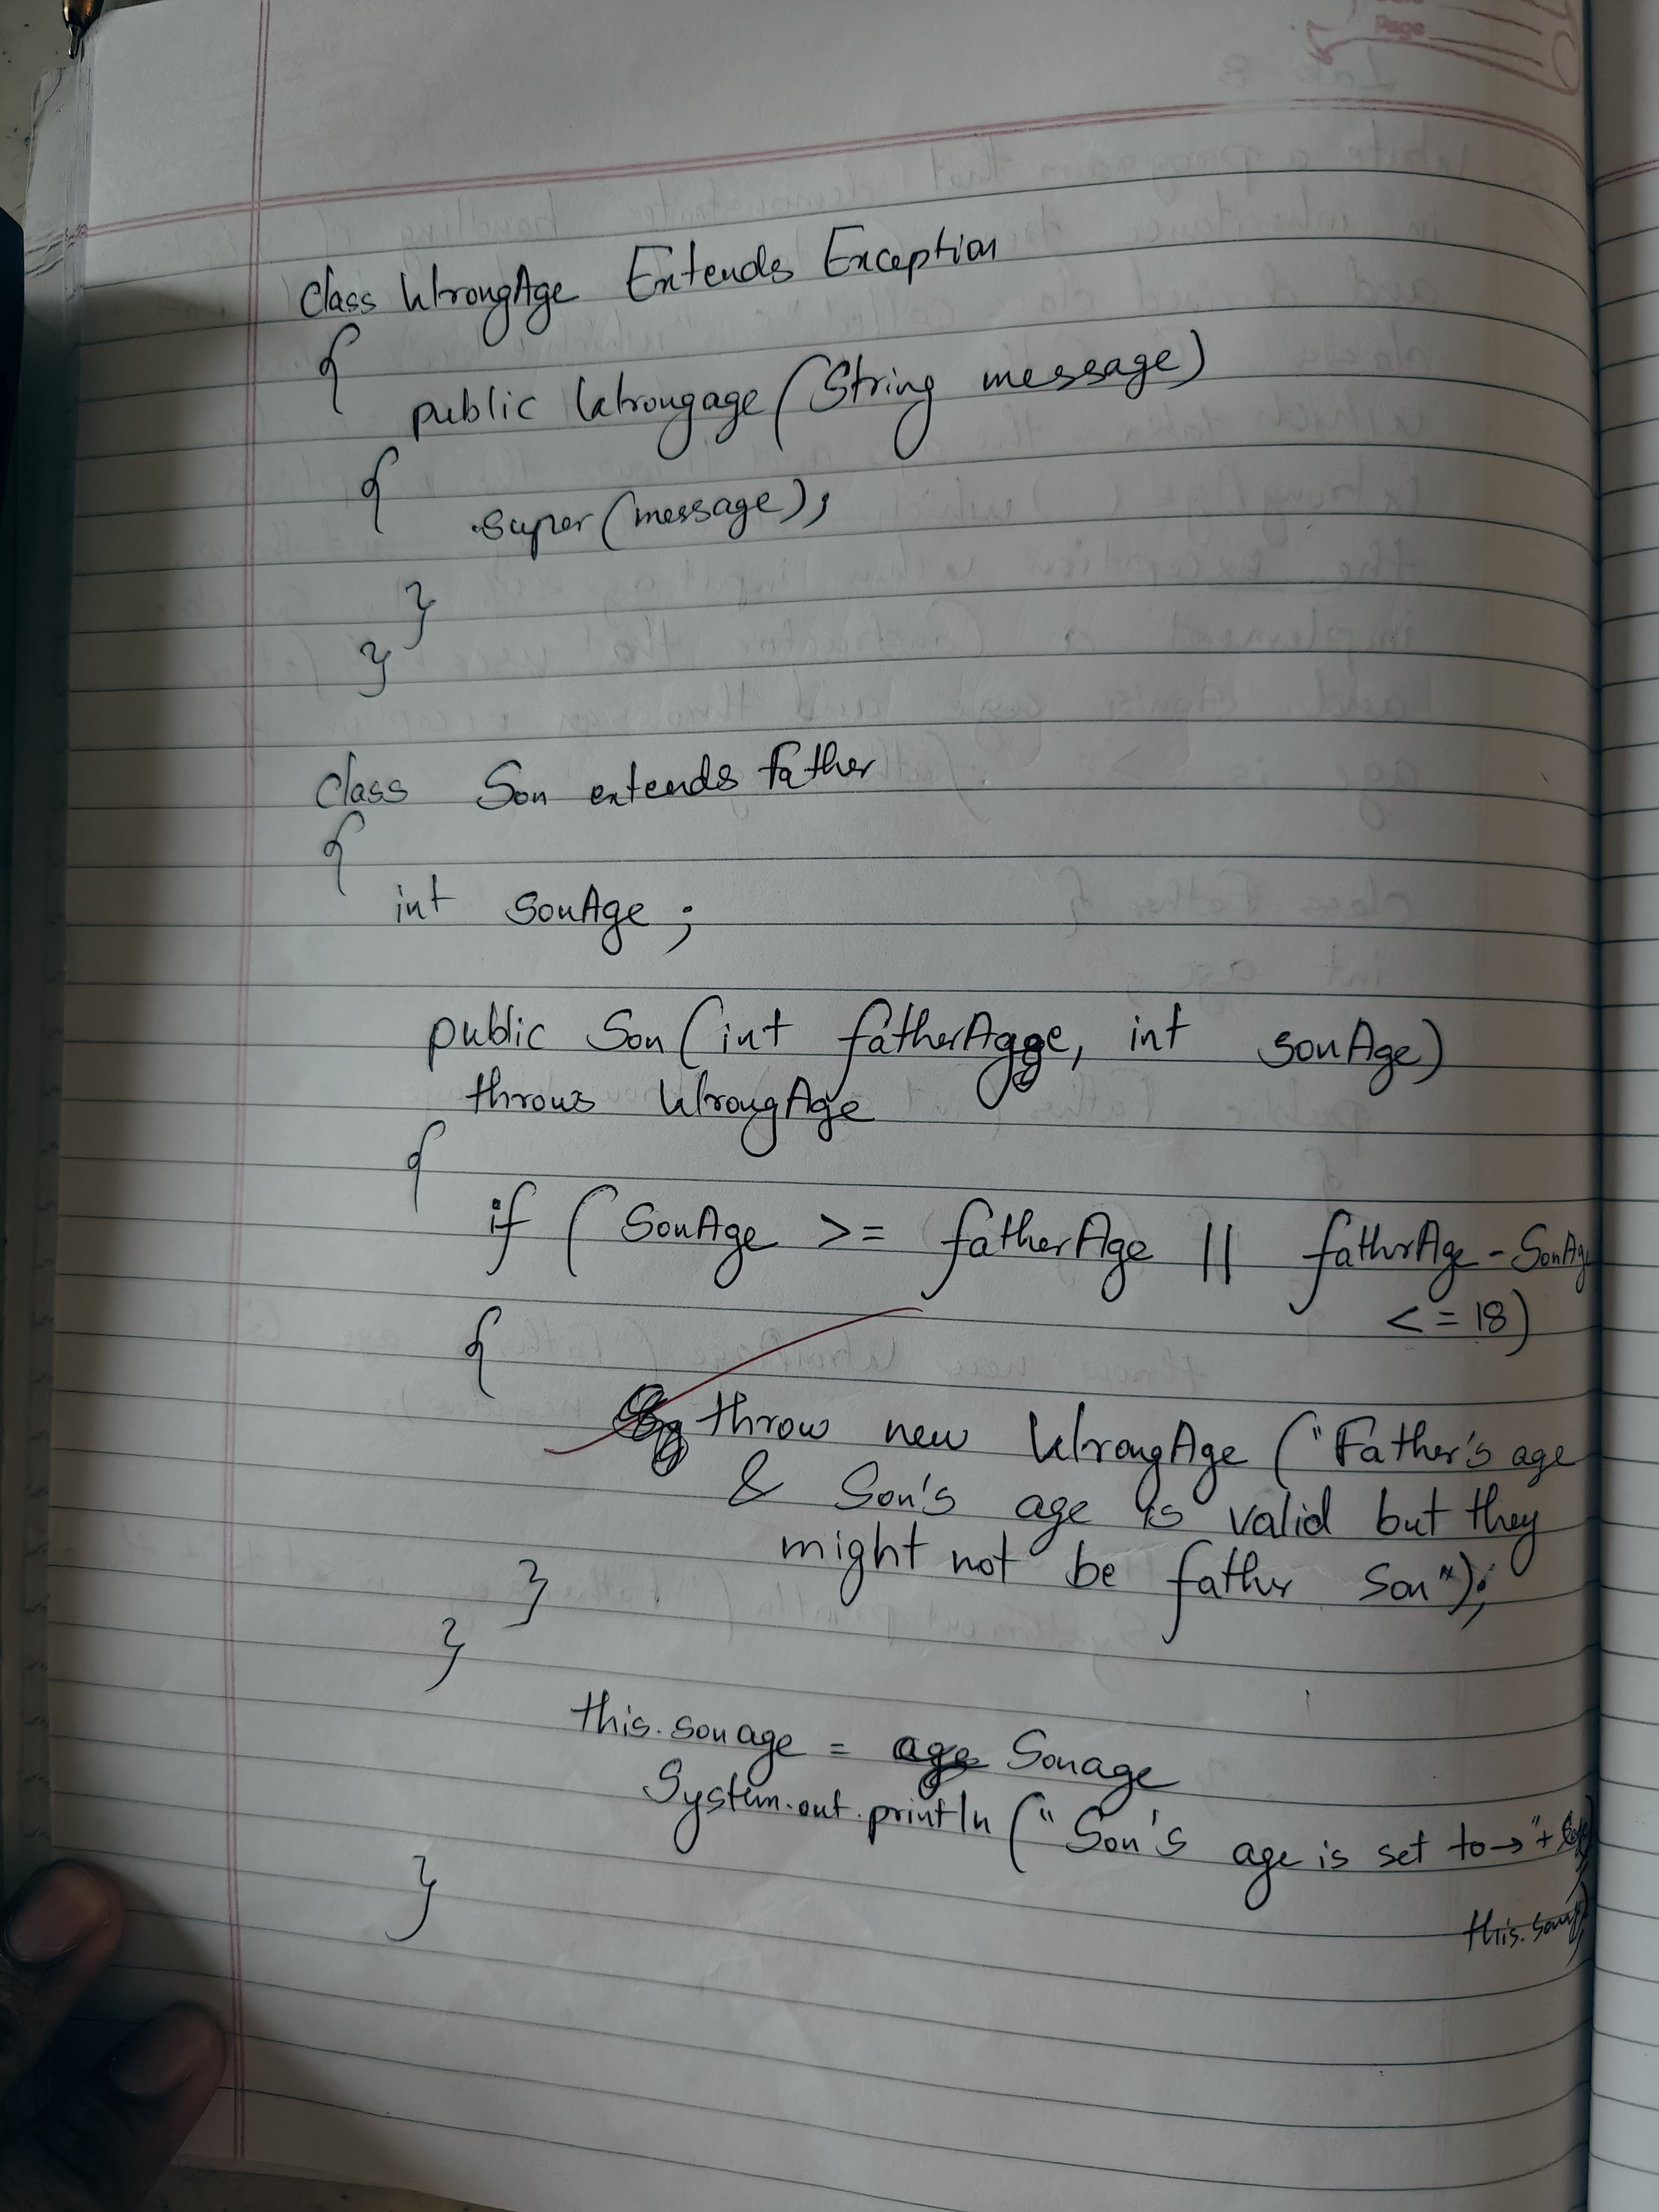 Page
class WrongAge Extends Exception
{
public Wrongage (String message)
{
super (message);
}
}
class Son extends father
{
int sonAge ;
public Son (int fatherAgge, int sonAge)
throws WrongAge
{
if ( SonAge >= fatherAge || fatherAge - SonAge
<= 18)
{
throw new WrongAge ("Father's age
& Son's age is valid but they
might not be father Son");
}
}
this.sonage = Sonage
System.out.println (" Son's age is set to→"+
}